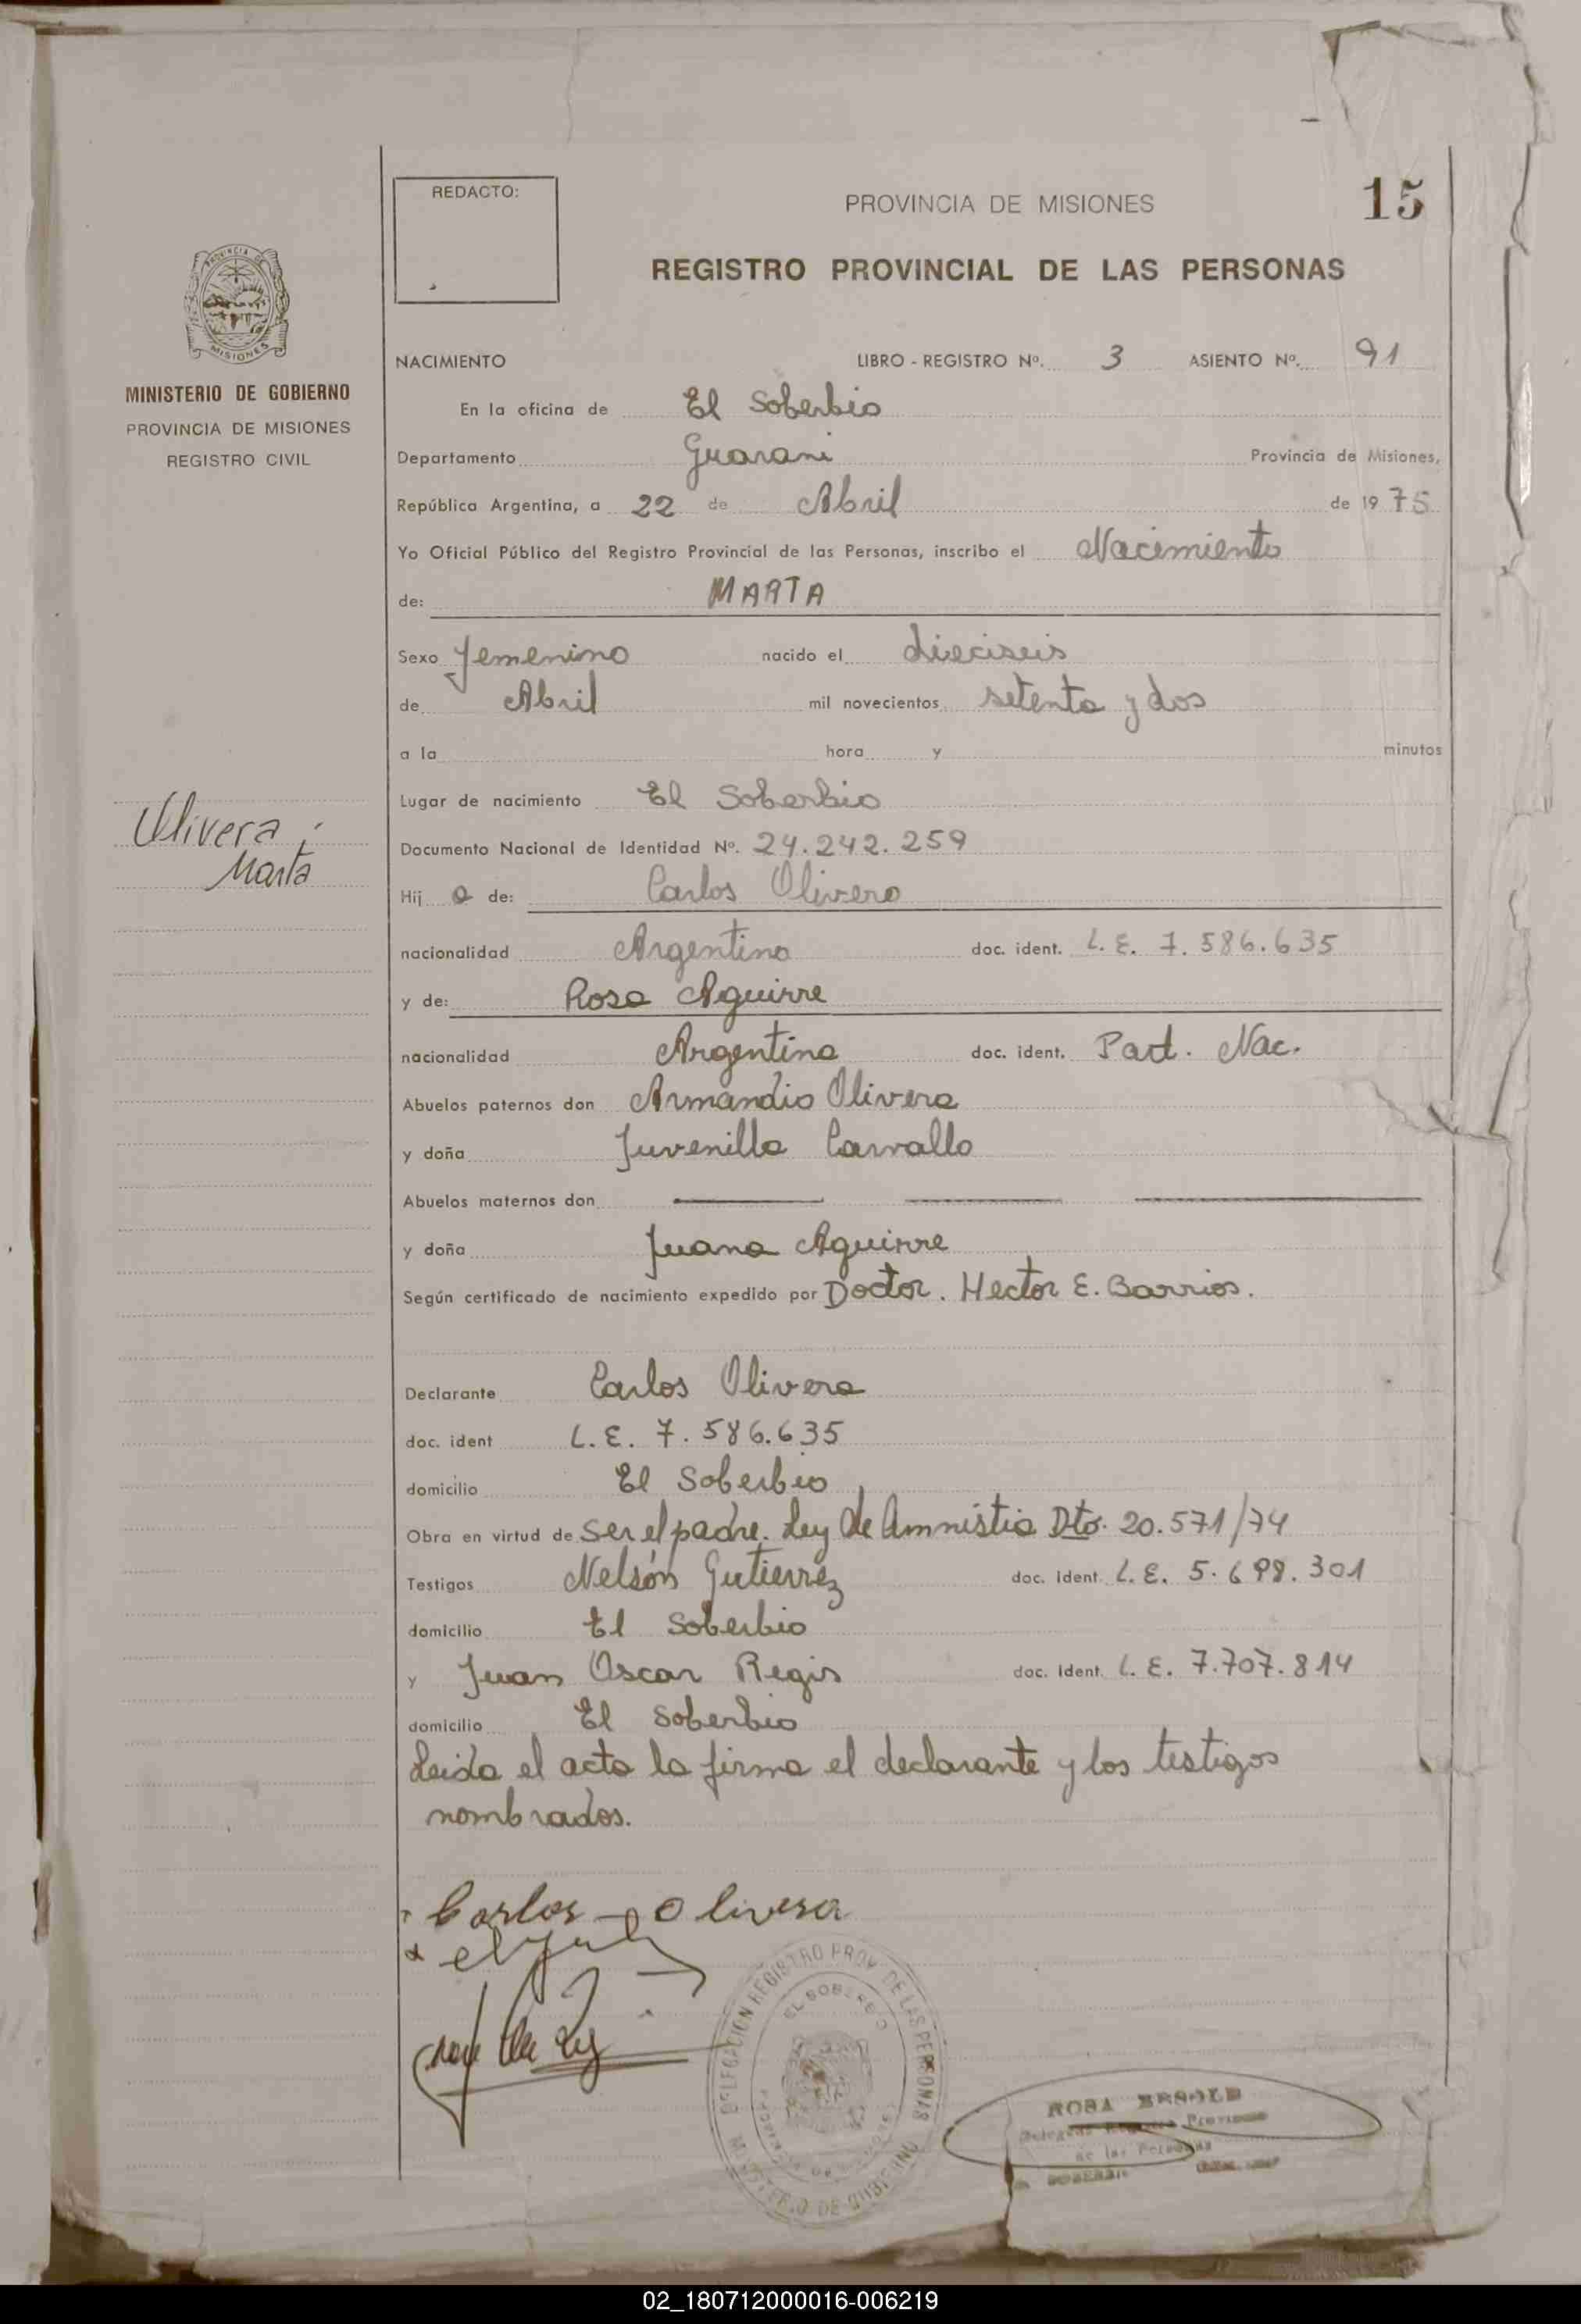 REDACTO:
PROVINCIA DE MISIONES
15
REGISTRO PROVINCIAL DE LAS PERSONAS
PROVINCIA DE
MISIONES
MINISTERIO DE GOBIERNO
PROVINCIA DE MISIONES
REGISTRO CIVIL
NACIMIENTO LIBRO - REGISTRO Nº. 3 ASIENTO Nº. 91
En la oficina de El Soberbio
Departamento Guarani Provincia de Misiones,
República Argentina, a 22 de Abril de 1975
Yo Oficial Público del Registro Provincial de las Personas, inscribo el Nacimiento
de: MARTA
Sexo femenino nacido el dieciseis
de Abril mil novecientos setenta y dos
a la hora y minutos
Lugar de nacimiento El Soberbio
Olivera
Marta
Documento Nacional de Identidad Nº. 24.242.259
Hij a de: Carlos Olivera
nacionalidad Argentina doc. ident. L.E. 7.586.635
y de: Rosa Aguirre
nacionalidad Argentina doc. ident. Part. Nac.
Abuelos paternos don Armandio Olivera
y doña Juvenilla Carvallo
Abuelos maternos don
y doña Juana Aguirre
Según certificado de nacimiento expedido por Doctor. Hector E. Barrios.
Declarante Carlos Olivera
doc. ident L.E. 7.586.635
domicilio El Soberbio
Obra en virtud de ser el padre. Ley de Amnistia Dto. 20.571/74
Testigos Nelsón Gutierrez doc. ident. L.E. 5.698.301
domicilio El Soberbio
y Juan Oscar Regis doc. ident. L.E. 7.707.814
domicilio El Soberbio
Leida el acta la firma el declarante y los testigos
nombrados.
Carlos Olivera
DELEGACION REGISTRO PROV. DE LAS PERSONAS
EL SOBERBIO
MINISTERIO DE GOBIERNO
ROSA
de las Personas
02_180712000016-006219